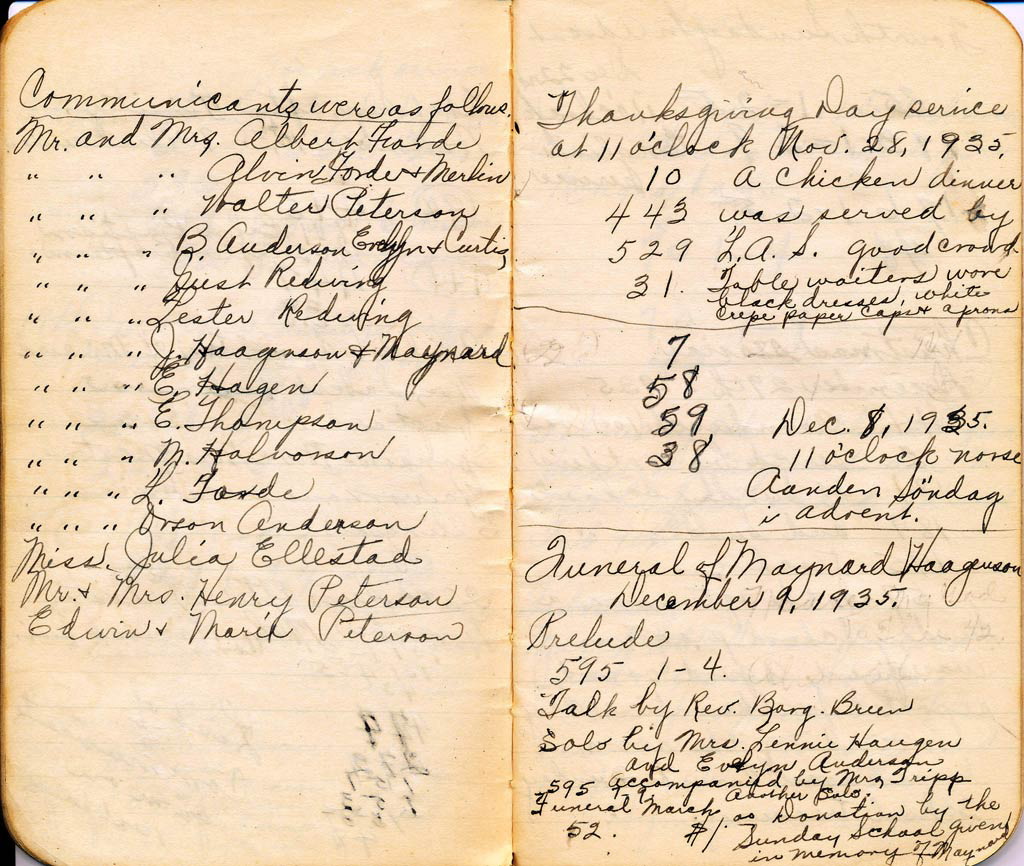 Communicants were as follows.
Mr. and Mrs. Albert Forde
" " " Alvin Forde & Merlin
" " " Walter Peterson
" " " B. Anderson Evelyn & Curtis
" " " Just Rediving
" " " Lester Rediving
" " " J. Haagenson & Maynard
" " " E. Hagen
" " " E. Thompson
" " " M. Halvorson
" " " L. Forde
" " " Orson Anderson
Miss. Julia Ellestad
Mr. & Mrs. Henry Peterson
Edwin & Marie Peterson
Thanksgiving Day service
at 11 o'clock Nov. 28, 1935.
10 A chicken dinner
443 was served by
529 L.A.S. good crowd
31. Table waiters wore
black dresses, white
crepe paper caps & aprons
7
58
59 Dec. 8, 1935.
38 11 o'clock norse
Aanden Söndag
i advent.
Funeral of Maynard Haagenson
December 9, 1935.
Prelude
595 1-4.
Talk by Rev. Borg. Breen
Solo by Mrs. Lennie Haugen
and Evelyn Anderson
Accompanied by Mrs. Tripp
595 Another Solo.
Funeral March Donation by the
52. $1 Sunday School given
in memory of Maynard